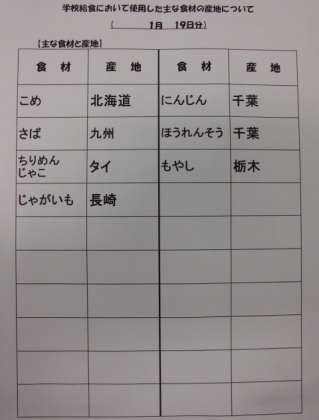 学校給食において使用した主な食材の産地について
( 1月 19日分)
【主な食材と産地】
食 材 産 地 食 材 産 地
こめ 北海道 にんじん 千葉
さば 九州 ほうれんそう 千葉
ちりめん
じゃこ タイ もやし 栃木
じゃがいも 長崎